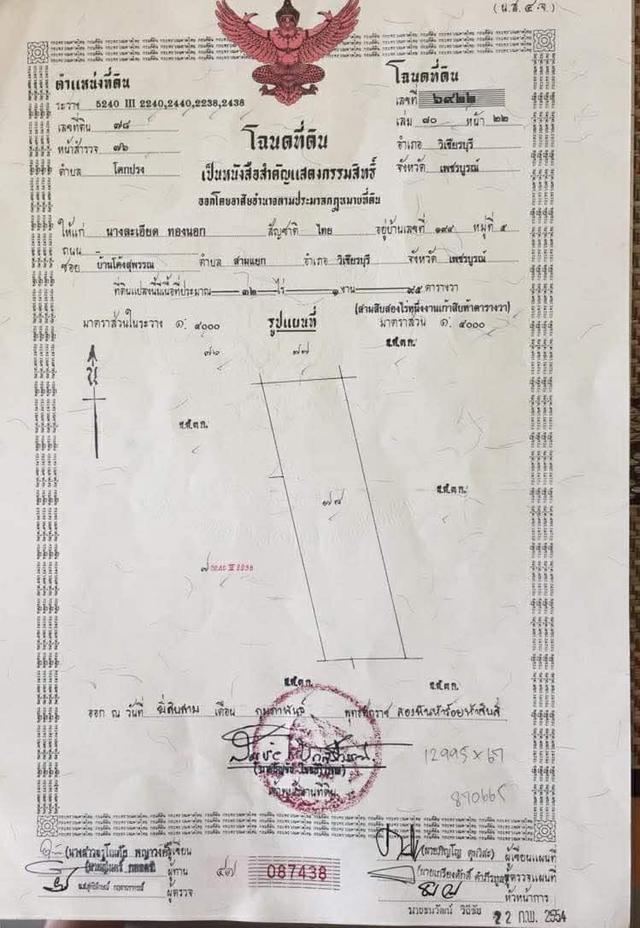 (น.ส.๔ จ.)
ตำแหน่งที่ดิน
ระวาง 5240 III 2240,2440,2238,2438
เลขที่ดิน ๗๘
หน้าสำรวจ ๗๖
ตำบล โคกปรง
โฉนดที่ดิน
เลขที่ ๖๙๒๒
เล่ม ๗๐ หน้า ๒๒
อำเภอ วิเชียรบุรี
จังหวัด เพชรบูรณ์
โฉนดที่ดิน
เป็นหนังสือสำคัญแสดงกรรมสิทธิ์
ออกโดยอาศัยอำนาจตามประมวลกฎหมายที่ดิน
ให้แก่ นางละเอียด ทองนอก สัญชาติ ไทย อยู่บ้านเลขที่ ๑๙๔ หมู่ที่ ๕
ถนน
ซอย บ้านโค้งสุพรรณ ตำบล สามแยก อำเภอ วิเชียรบุรี จังหวัด เพชรบูรณ์
ที่ดินแปลงนี้มีเนื้อที่ประมาณ ๓๒ ไร่ ๑ งาน ๙๕ ตารางวา
(สามสิบสองไร่หนึ่งงานเก้าสิบห้าตารางวา)
มาตราส่วนในระวาง ๑: ๔๐๐๐ รูปแผนที่ มาตราส่วน ๑: ๔๐๐๐
ส.ป.ก.
๗๖ ๗๗
น
ส.ป.ก.
๗๘
ส.ป.ก.
๗
ส.ป.ก.
ส.ป.ก.
ออก ณ วันที่ ยี่สิบสาม เดือน กุมภาพันธ์ พุทธศักราช สองพันห้าร้อยห้าสิบสี่
เจ้าพนักงานที่ดิน
12995 x 67
870665
ผู้เขียน
ผู้ทาน
ผู้ตรวจ
๔๗ 087438
ผู้เขียนแผนที่
ผู้ตรวจแผนที่
หัวหน้าการ
22 ก.พ. 2554